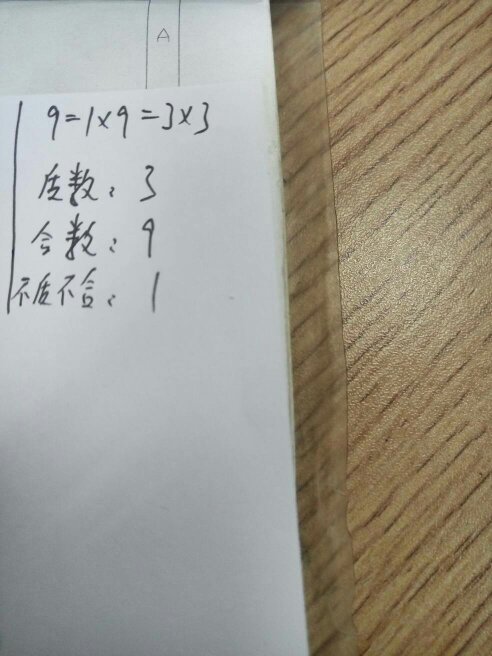 A
9=1×9=3×3
质数：3
合数：9
不质不合：1